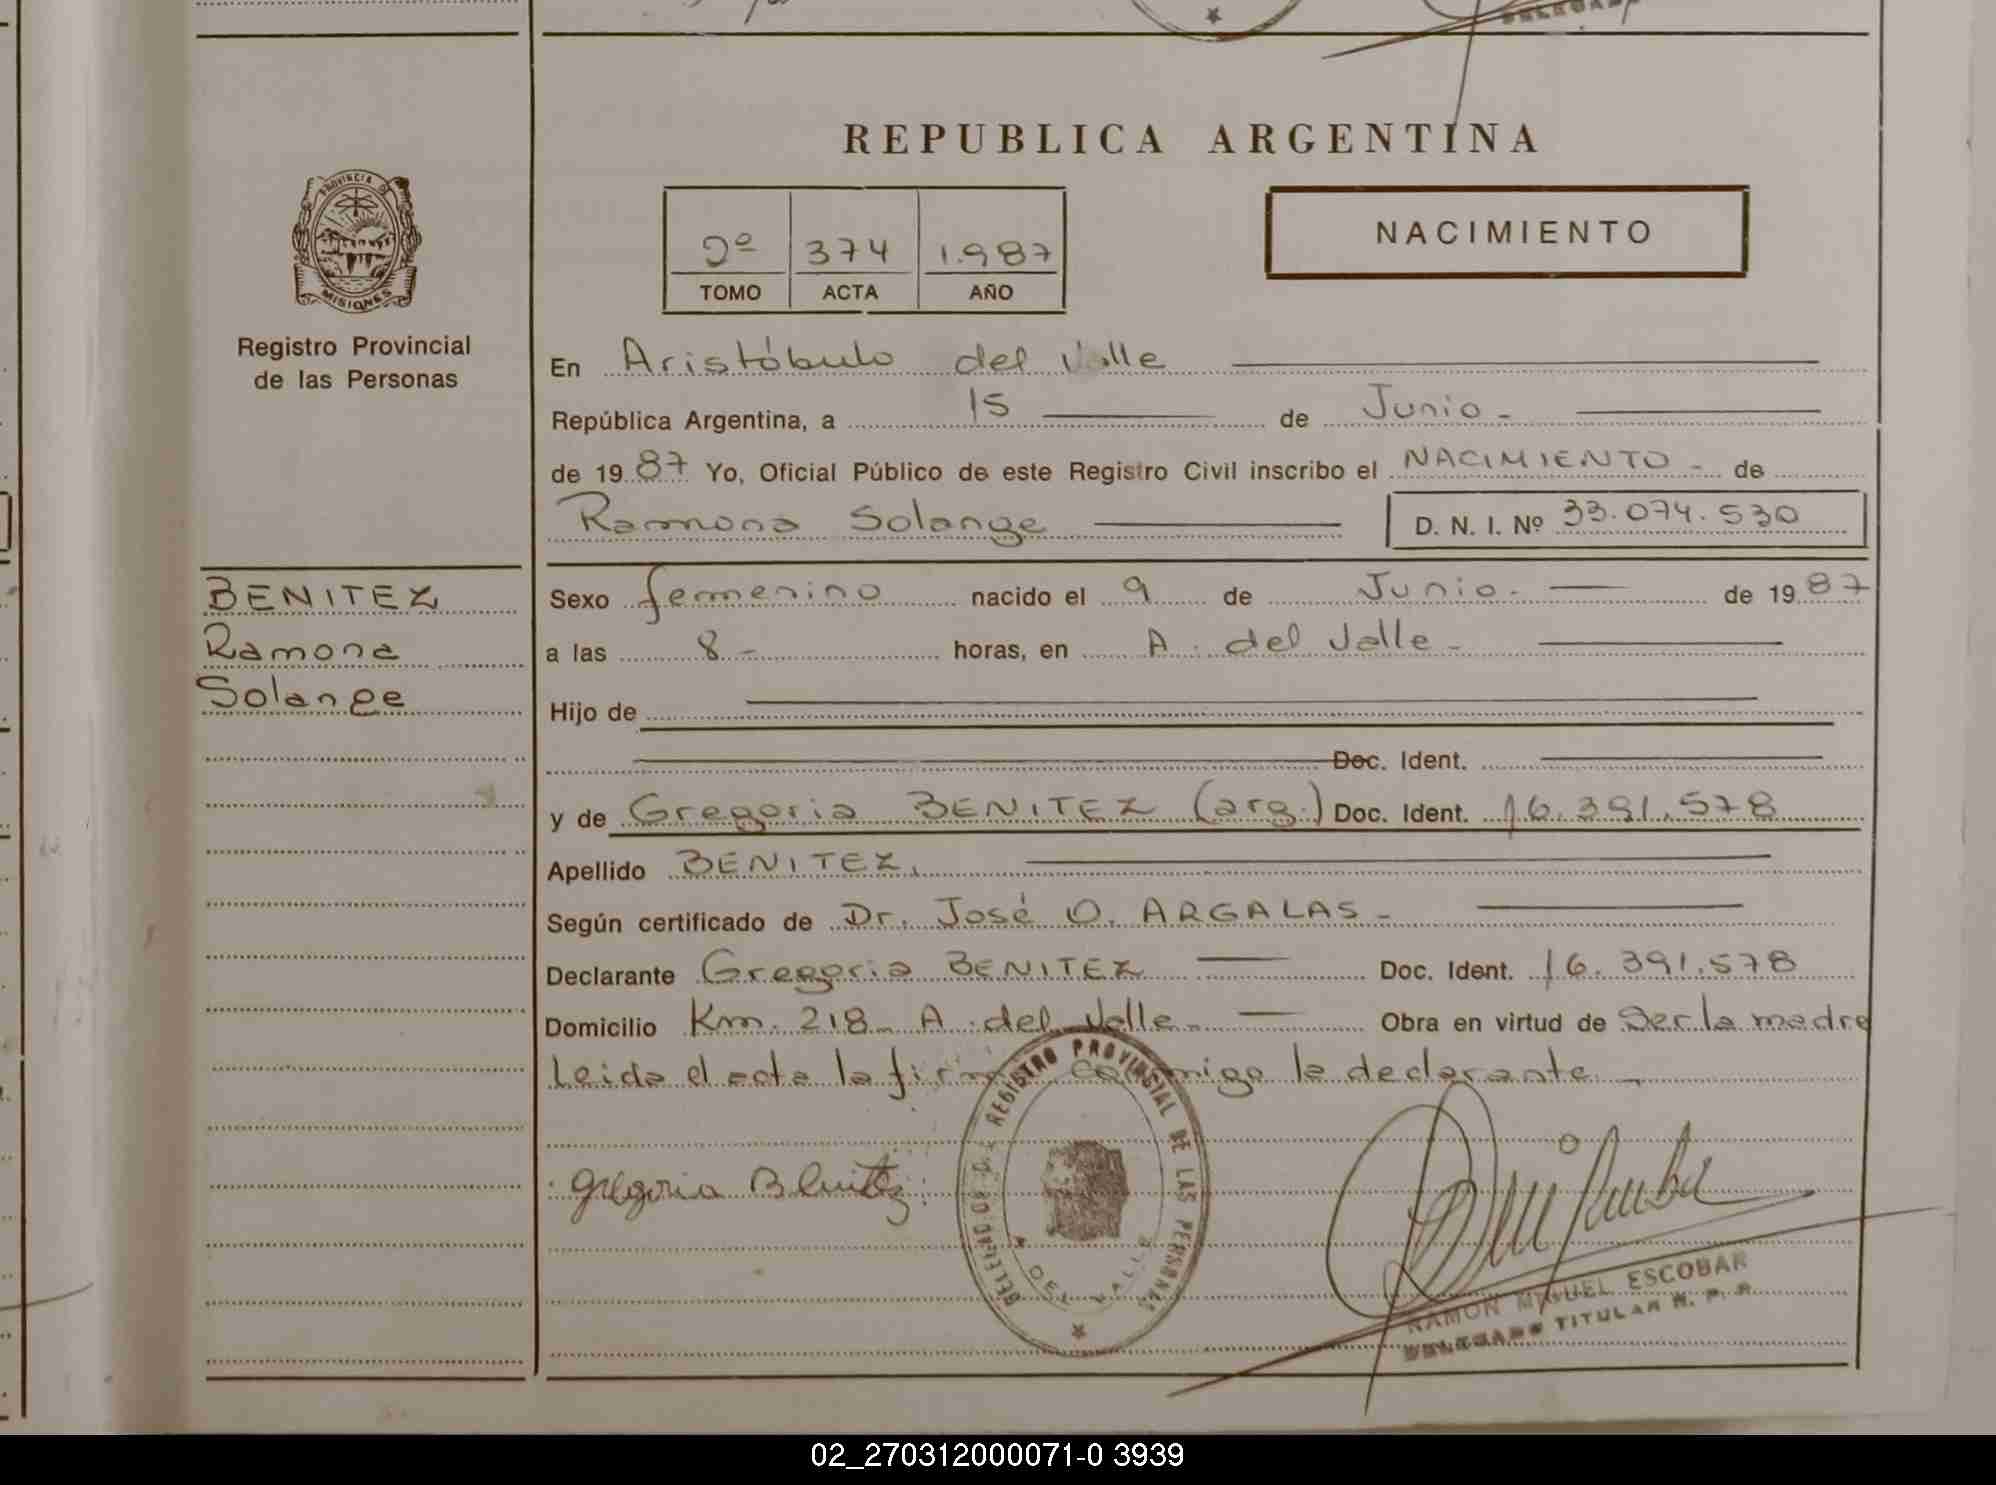 REPUBLICA ARGENTINA
PROVINCIA DE
MISIONES
Registro Provincial
de las Personas
2º 374 1.987
TOMO ACTA AÑO
NACIMIENTO
En Aristóbulo del Valle
República Argentina, a 15 de Junio.-
de 1987 Yo, Oficial Público de este Registro Civil inscribo el NACIMIENTO - de
Ramona Solange D. N. I. Nº 33.074.530
BENITEZ
Ramona
Solange
Sexo femenino nacido el 9 de Junio.- de 1987
a las 8- horas, en A. del Valle-
Hijo de
Doc. Ident.
y de Gregoria BENITEZ (arg.) Doc. Ident. 16.391.578
Apellido BENITEZ.
Según certificado de Dr. José O. ARGALAS-
Declarante Gregoria BENITEZ Doc. Ident. 16.391.578
Domicilio Km. 218- A. del Valle- Obra en virtud de Ser la madre
Leida el acta la firma conmigo la declarante-
Gregoria Benitez
REGISTRO PROVINCIAL DE LAS PERSONAS
A. DEL VALLE
RAMON MIGUEL ESCOBAR
DELEGADO TITULAR R. P. P.
02_270312000071-0 3939